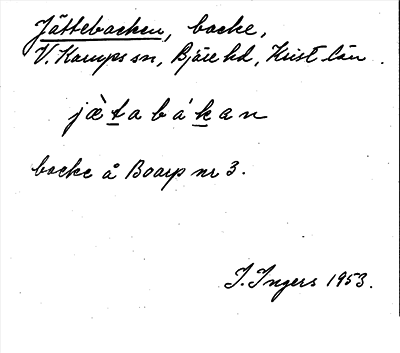 Jättebacken, backe,
V. Karups sn, Bjäre hd, Krist län.
jæ̀tabákan
backe å Boarp nr 3.
I. Ingers 1953.